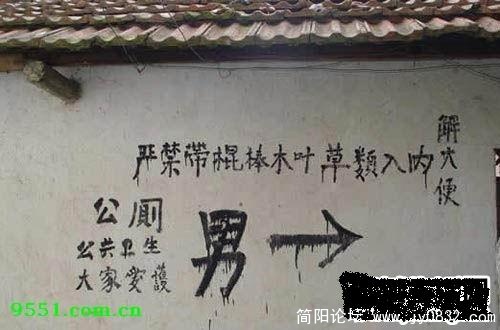 解大便
严禁帶棍棒木叶草類入内
公厠
公共卫生
大家爱護
男
9551.com.cn
简阳论坛